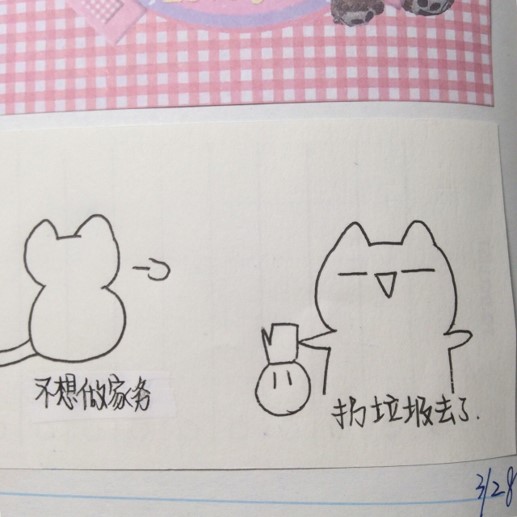 不想做家务
扔垃圾去了.
3/28